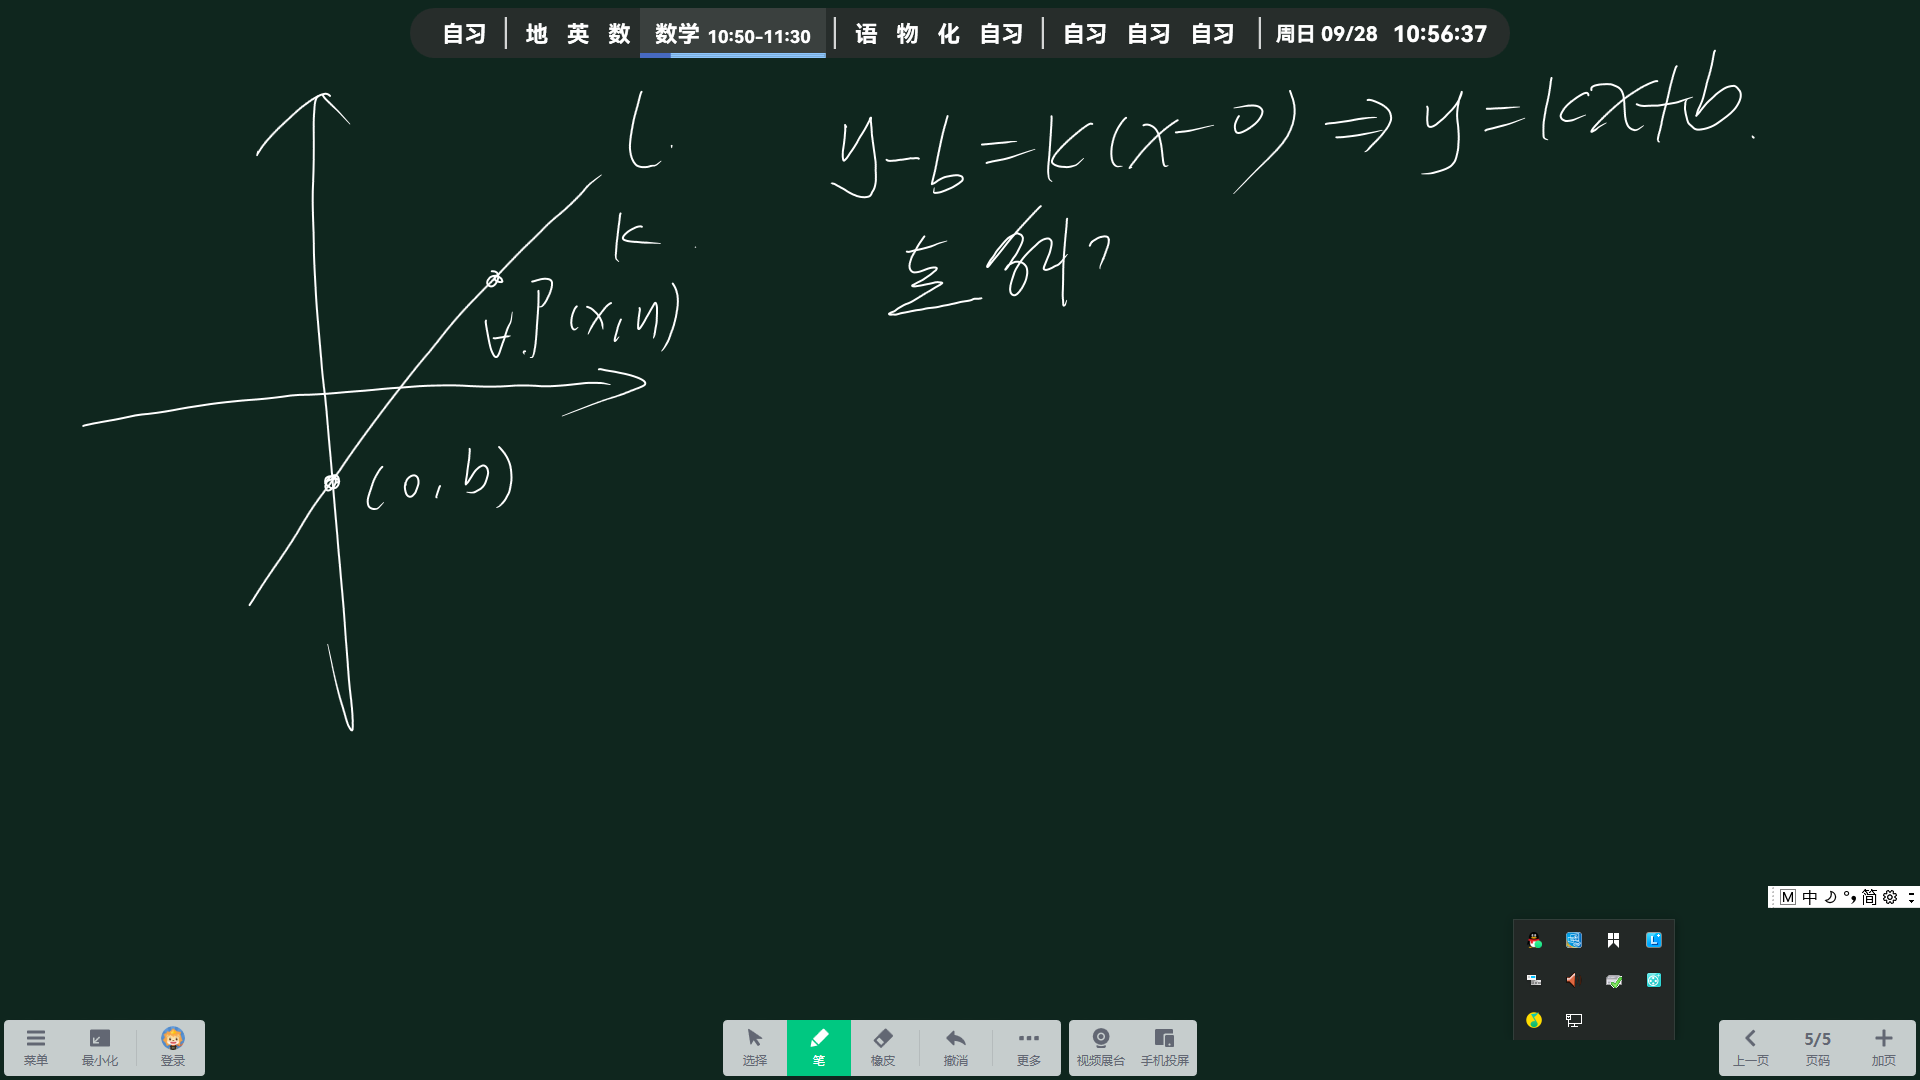 自习 地 英 数 数学 10:50-11:30 语 物 化 自习 自习 自习 自习 周日 09/28 10:56:37
l.
y-b=k(x-0)⇒y=kx+b.
k.
点斜
∀.P(x,y)
(0,b)
M 中 简
菜单 最小化 登录 选择 笔 橡皮 撤消 更多 视频展台 手机投屏 上一页 5/5 页码 加页